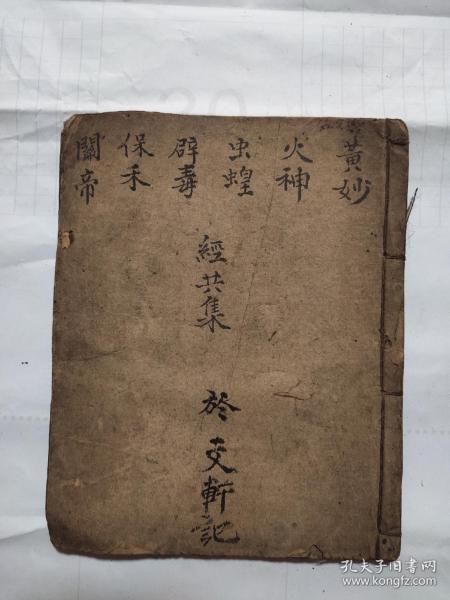 黃妙
火神
虫蝗
辟毒
保禾
關帝
經共集
於文軒記
孔夫子旧书网
www.kongfz.com